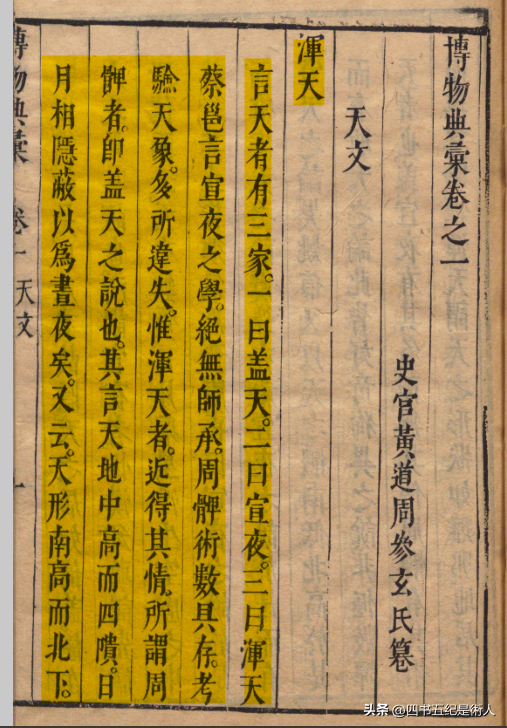 博物典彙卷之一
史官黃道周參玄氏纂
天文
渾天
言天者有三家。一曰盖天。二曰宣夜。三曰渾天
蔡邕言宣夜之學。絕無師承。周髀術數具存。考
驗天象。多所違失。惟渾天者。近得其情。所謂周
髀者。即盖天之說也。其言天地中高而四隤。日
月相隱蔽以爲晝夜矣。又云。天形南高而北下。
博物典彙 卷一 天文 一
头条 @四书五纪是術人